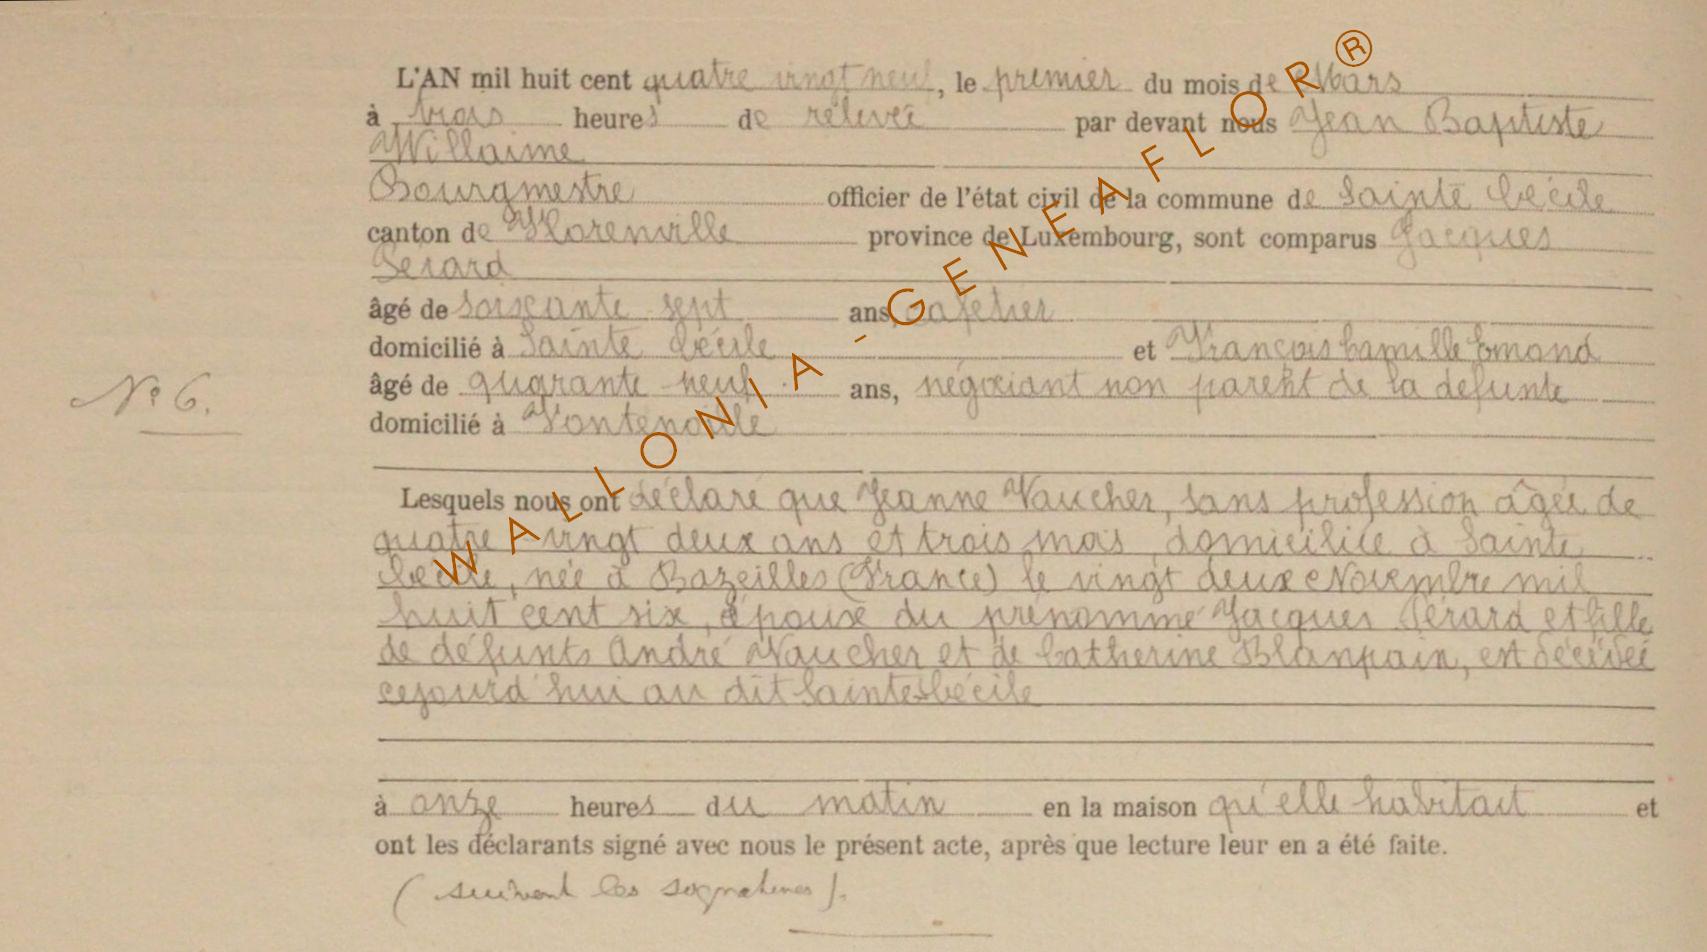 L'AN mil huit cent quatre vingt neuf, le premier du mois de Mars
à trois heures de rélevée par devant nous Jean Baptiste
Willaime
Bourgmestre officier de l'état civil de la commune de Sainte Cécile
canton de Florenville province de Luxembourg, sont comparus Jacques
Gérard
âgé de soixante sept ans, cafetier
domicilié à Sainte Cécile et François Camille Emond
âgé de quarante neuf ans, négociant non parent de la défunte
domicilié à Fontenoille
N° 6.
Lesquels nous ont déclaré que Jeanne Vaucher, sans profession âgée de
quatre vingt deux ans et trois mois domiciliée à Sainte
Cécile, née à Bazeilles (France) le vingt deux Novembre mil
huit cent six, épouse du prénommé Jacques Gérard et fille
de défunts André Vaucher et de Catherine Blanpain, est décédée
cejourd'hui au dit Sainte-Cécile
à onze heures du matin en la maison qu'elle habitait et
ont les déclarants signé avec nous le présent acte, après que lecture leur en a été faite.
(suivent les signatures).
WALLONIA-GENEAFLOR®